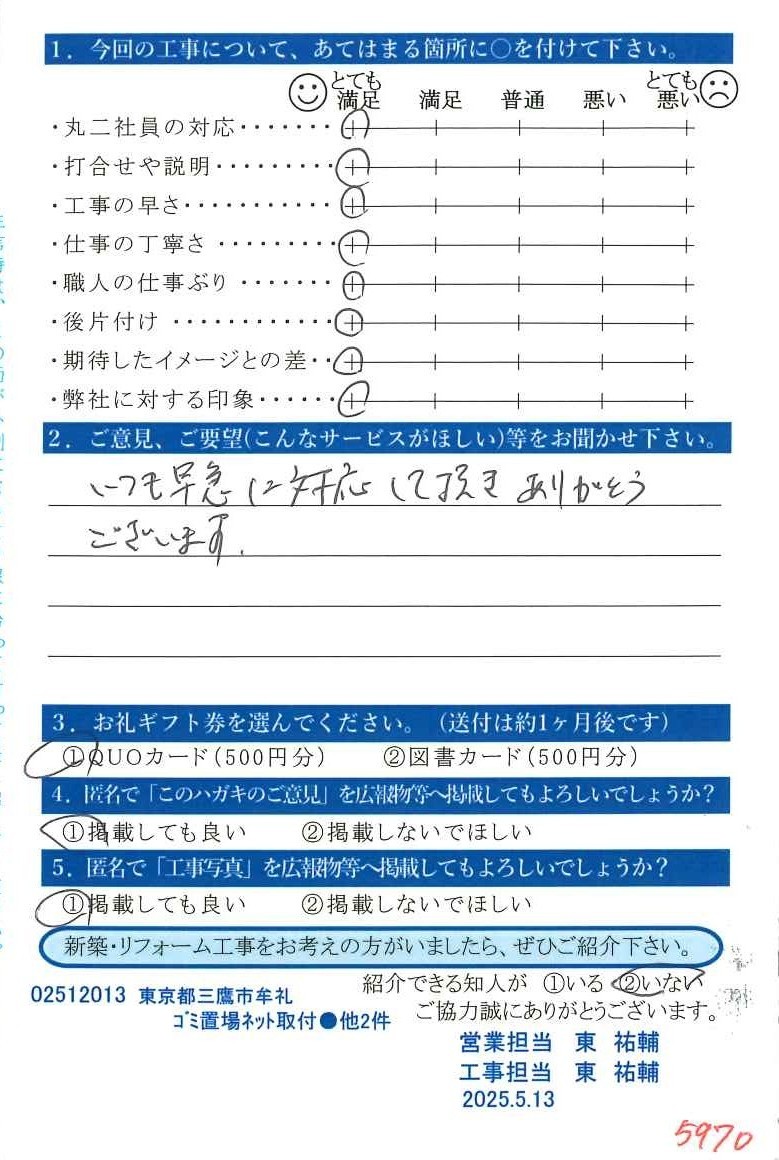 1．今回の工事について、あてはまる箇所に○を付けて下さい。
とても とても
満足 満足 普通 悪い 悪い
・丸二社員の対応・・・・・・・
・打合せや説明・・・・・・・・・
・工事の早さ・・・・・・・・・・・
・仕事の丁寧さ・・・・・・・・・
・職人の仕事ぶり・・・・・・・・
・後片付け・・・・・・・・・・・・
・期待したイメージとの差・・
・弊社に対する印象・・・・・・
2．ご意見、ご要望(こんなサービスがほしい)等をお聞かせ下さい。
いつも早急に対応して頂き ありがとう
ございます。
3．お礼ギフト券を選んでください。（送付は約1ヶ月後です）
①QUOカード(500円分) ②図書カード(500円分)
4．匿名で「このハガキのご意見」を広報物等へ掲載してもよろしいでしょうか？
①掲載しても良い ②掲載しないでほしい
5．匿名で「工事写真」を広報物等へ掲載してもよろしいでしょうか？
①掲載しても良い ②掲載しないでほしい
新築・リフォーム工事をお考えの方がいましたら、ぜひご紹介下さい。
紹介できる知人が ①いる ②いない
02512013 東京都三鷹市牟礼
ご協力誠にありがとうございます。
ｺﾞﾐ置場ネット取付●他2件
営業担当 東 祐輔
工事担当 東 祐輔
2025.5.13
5970